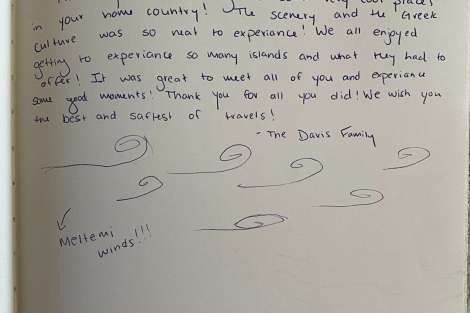 very cool places
in your home country! The scenery and the Greek
culture was so neat to experiance! We all enjoyed
getting to experiance so many islands and what they had to
offer! It was great to meet all of you and experiance
some good moments! Thank you for all you did! We wish you
the best and saftest of travels!
- The Davis Family
Meltemi
winds!!!